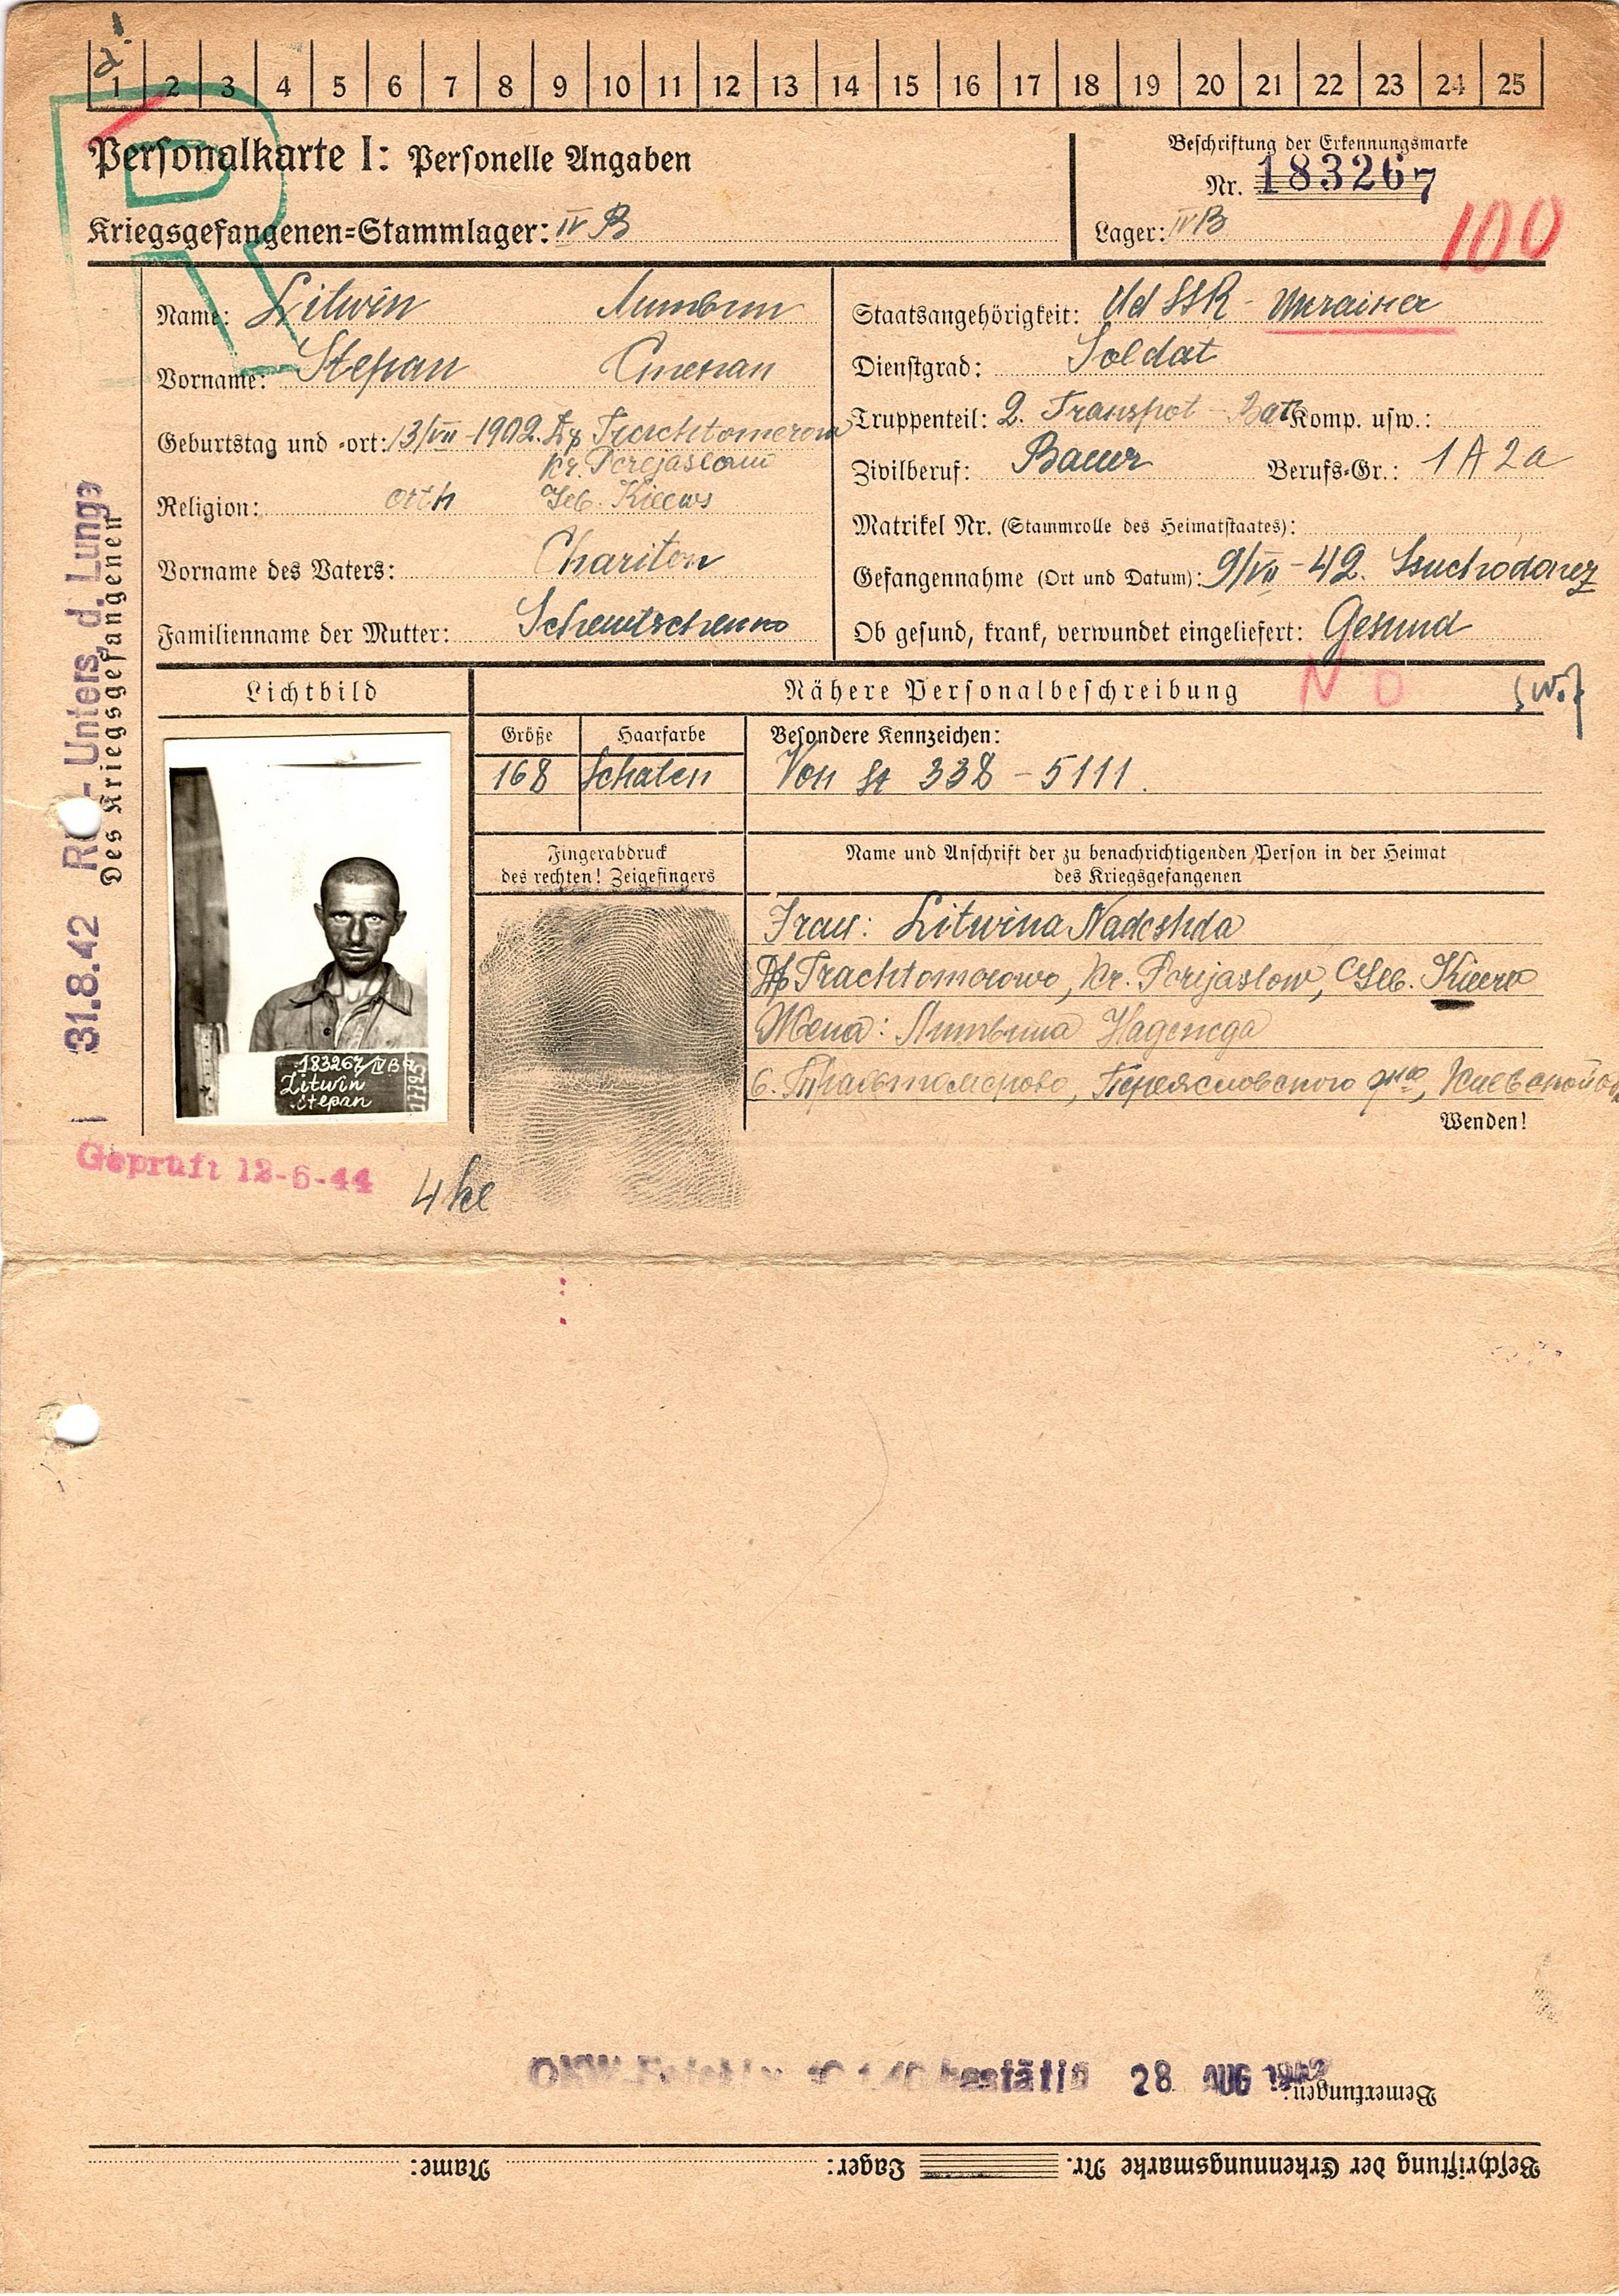 1 2 3 4 5 6 7 8 9 10 11 12 13 14 15 16 17 18 19 20 21 22 23 24 25
Personalkarte I: Personelle Angaben
Beschriftung der Erkennungsmarke
Nr. 183267
Kriegsgefangenen=Stammlager: IV B
Lager: IV B
100
Name: Litwin Литвин
Vorname: Stepan Степан
Geburtstag und =ort: 13/VII-1902. Df Trachtomerowo
Kr. Perejaslow
Religion: orth Geb. Kiews
Vorname des Vaters: Chariton
Familienname der Mutter: Schewtschenko
Staatsangehörigkeit: UdSSR - Ukrainer
Dienstgrad: Soldat
Truppenteil: 2. Transpot-Bat Komp. usw.:
Zivilberuf: Bauer Berufs=Gr.: 1 A 2a
Matrikel Nr. (Stammrolle des Heimatstaates):
Gefangennahme (Ort und Datum): 9/VII-42. Ssuchodonez
Ob gesund, krank, verwundet eingeliefert: Gesund
Des Kriegsgefangenen
31.8.42 Rö - Unters. d. Lunge
Lichtbild
Nähere Personalbeschreibung
N D
Größe Haarfarbe Besondere Kennzeichen:
168 Schaten Von St 338-5111.
Fingerabdruck
des rechten! Zeigefingers
Name und Anschrift der zu benachrichtigenden Person in der Heimat
des Kriegsgefangenen
Frau: Litwina Nadeshda
Df Trachtomorowo, Kr. Perejaslow, Geb. Kiew
Жена: Литвина Надежда
с. Трахтоморово, Переясловского р-на, Киевской об
183267/IV B
Litwin
Stepan
Wenden!
Geprüft 12-6-44
4 kl
bestätig 28 AUG 1942
Bemerkungen:
Beschriftung der Erkennungsmarke Nr. Lager: Name: